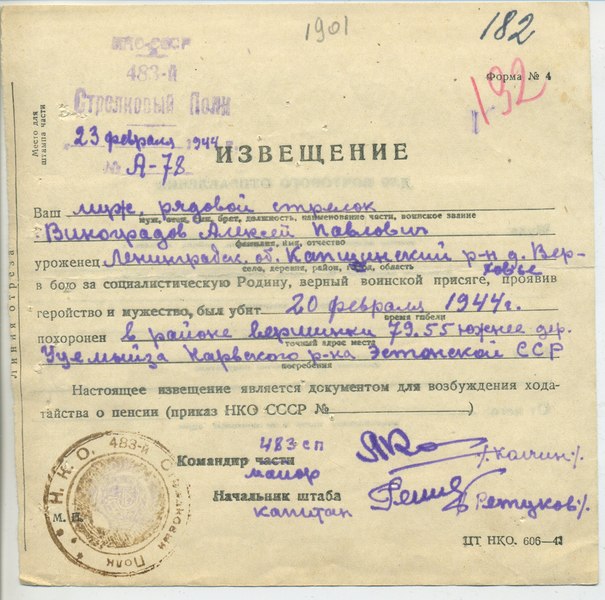 1901
182
192
НКО-СССР
483-й
Стрелковый Полк
Форма № 4
Место для
штампа части
„23 февраля 1944 г.
№ А-78
ИЗВЕЩЕНИЕ
Ваш муж, рядовой стрелок
муж, сын, брат, должность, наименование части, воинское звание
Виноградов Алексей Павлович
фамилия, имя, отчество
уроженец Ленинградск. об. Капшинский р-н д. Вер-
ховье
село, деревня, район, город, область
в бою за социалистическую Родину, верный воинской присяге, проявив
геройство и мужество, был убит 20 февраля 1944 г.
время гибели
похоронен в районе вершинки 79.55 южнее дер.
точный адрес места
Нарвского р-на Эстонской ССР
погребения
Линия отреза
Настоящее извещение является документом для возбуждения хода-
тайства о пенсии (приказ НКО СССР № )
483 сп
Командир части
майор
Начальник штаба
капитан
М. П.
Н. К. О. 483-й Стрелковый Полк
ЦТ НКО. 606—41